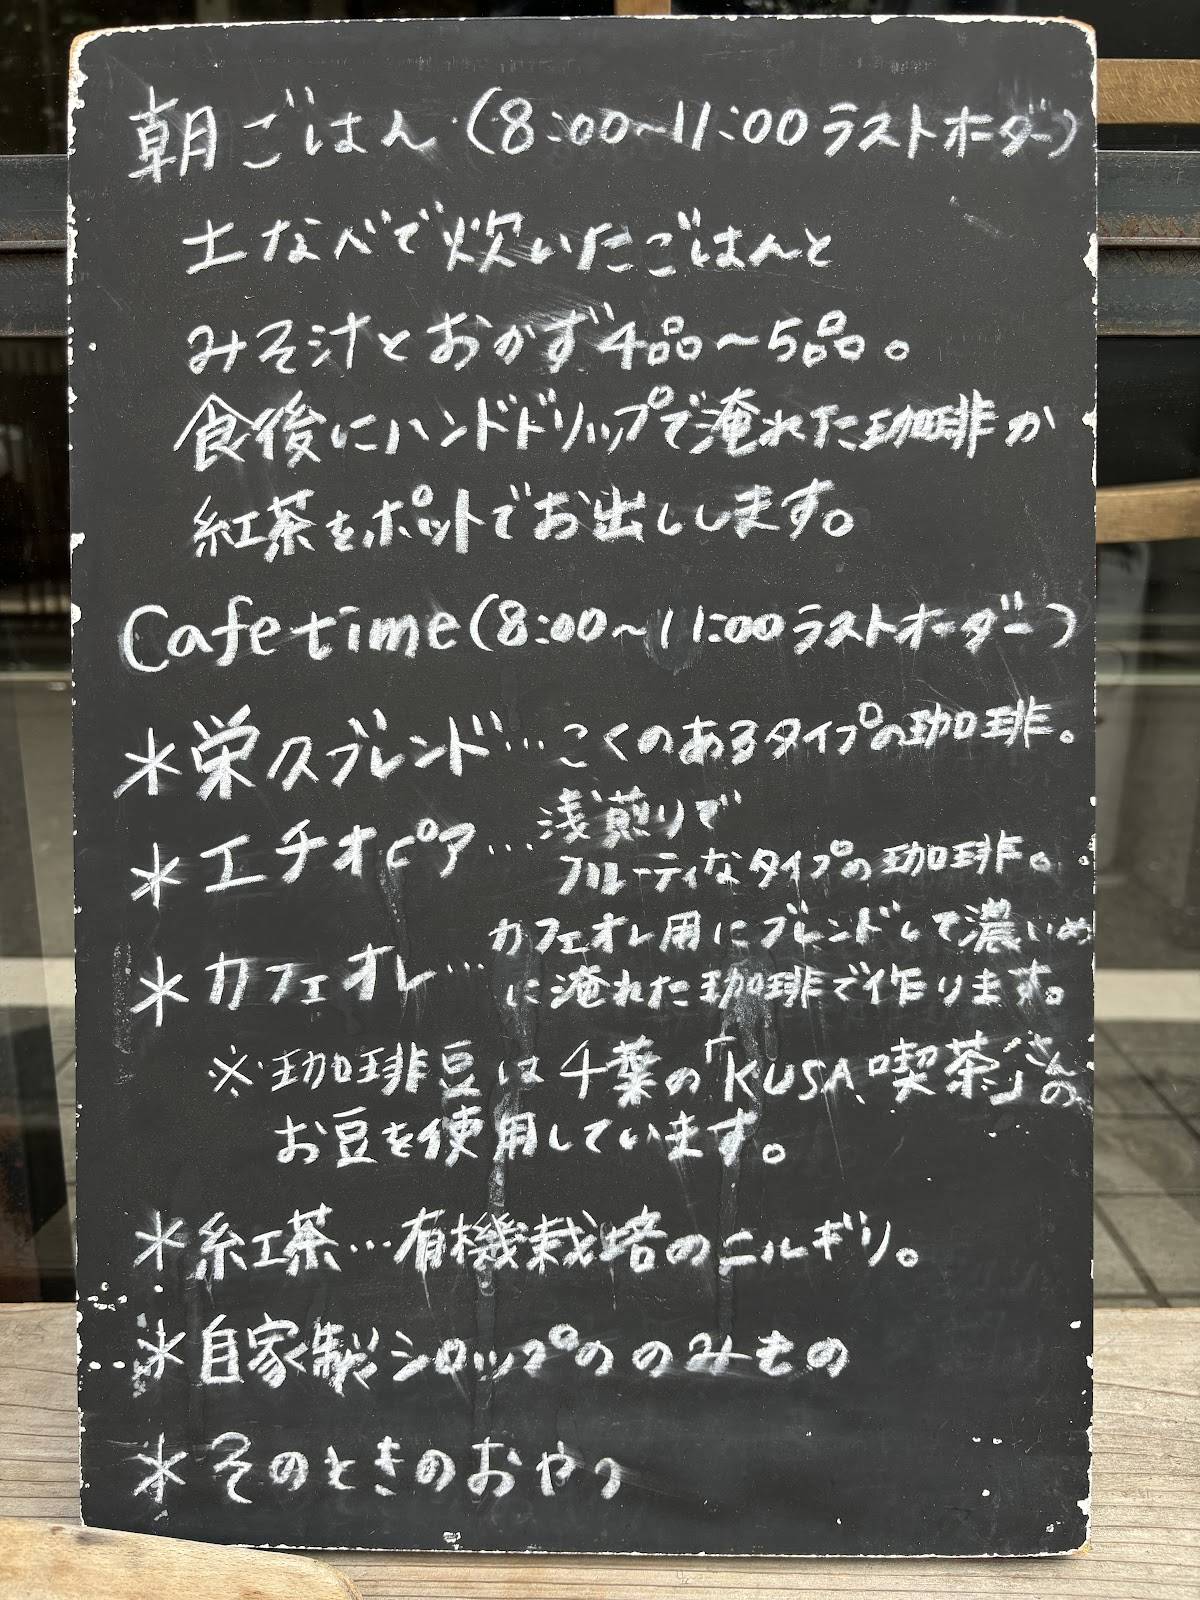 朝ごはん(8:00~11:00ラストオーダー)
土なべで炊いたごはんと
みそ汁とおかず4品~5品。
食後にハンドドリップで淹れた珈琲か
紅茶をポットでお出しします。
Cafe time(8:00~11:00ラストオーダー)
*栄久ブレンド…こくのあるタイプの珈琲。
*エチオピア…浅煎りで
フルーティなタイプの珈琲。
*カフェオレ…カフェオレ用にブレンドして濃いめ
に淹れた珈琲で作ります。
※珈琲豆は千葉の「KUSA喫茶」さんの
お豆を使用しています。
*紅茶…有機栽培のニルギリ。
*自家製シロップののみもの
*そのときのおやつ